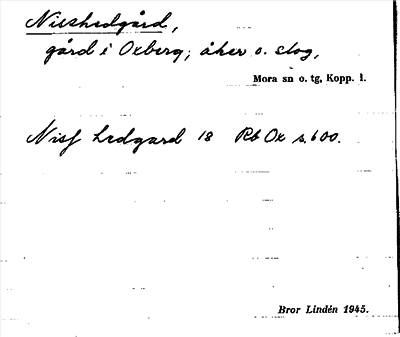 Nisshedgård,
gård i Oxberg; åker o. slog,
Mora sn o. tg, Kopp. l.
Nisf hedgard 18 Rb Ox s. 600.
Bror Lindén 1945.